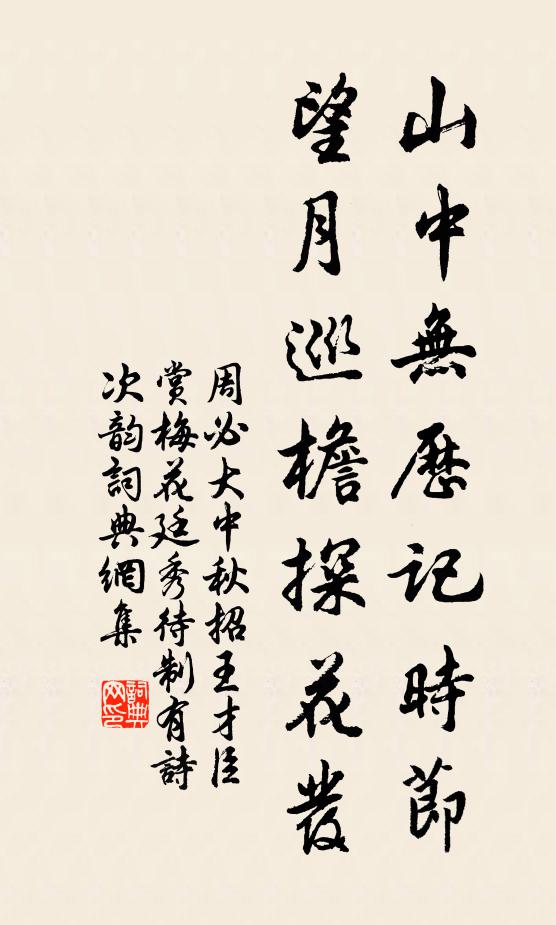 山中無歷記時節
望月巡檐探花發
周必大中秋招王才臣
賞梅花廷秀待制有詩
次韵詞典網集
詞典
网印